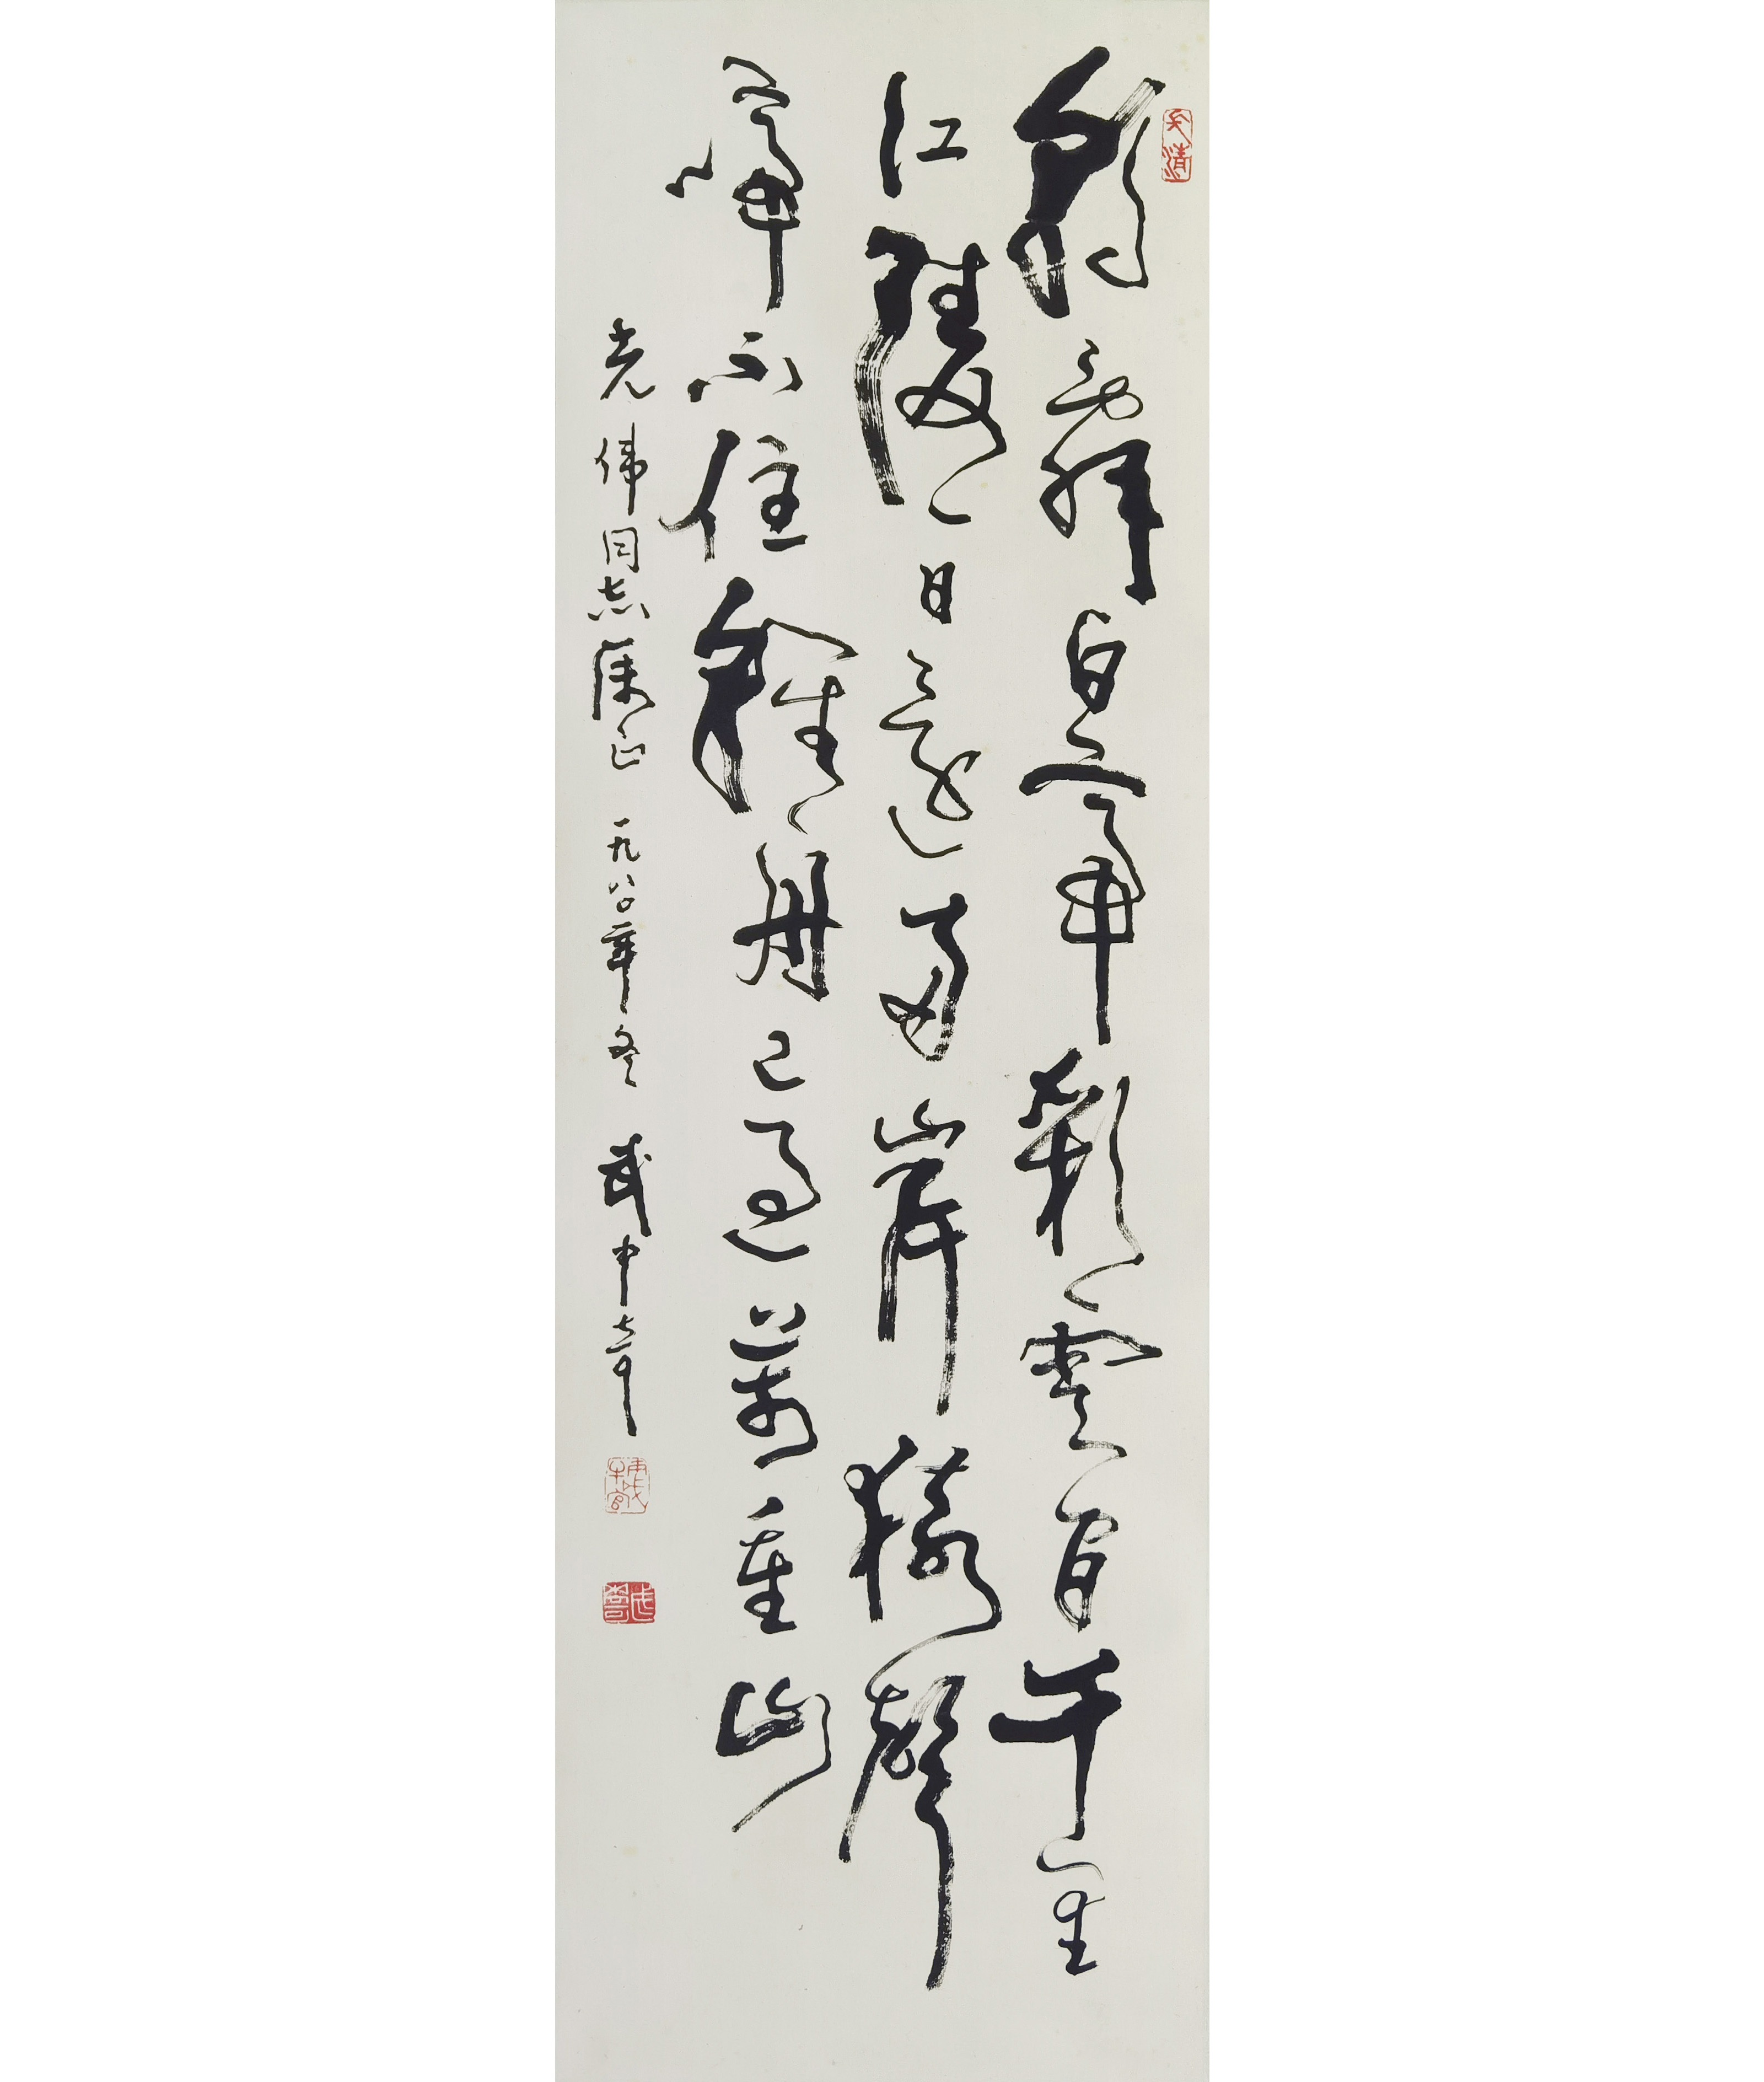 天清
朝辞白帝彩雲百千里
江陵一日還両岸猿聲
啼不住軽舟已過萬重山
光偉同志属正 一九八〇年冬 武中奇